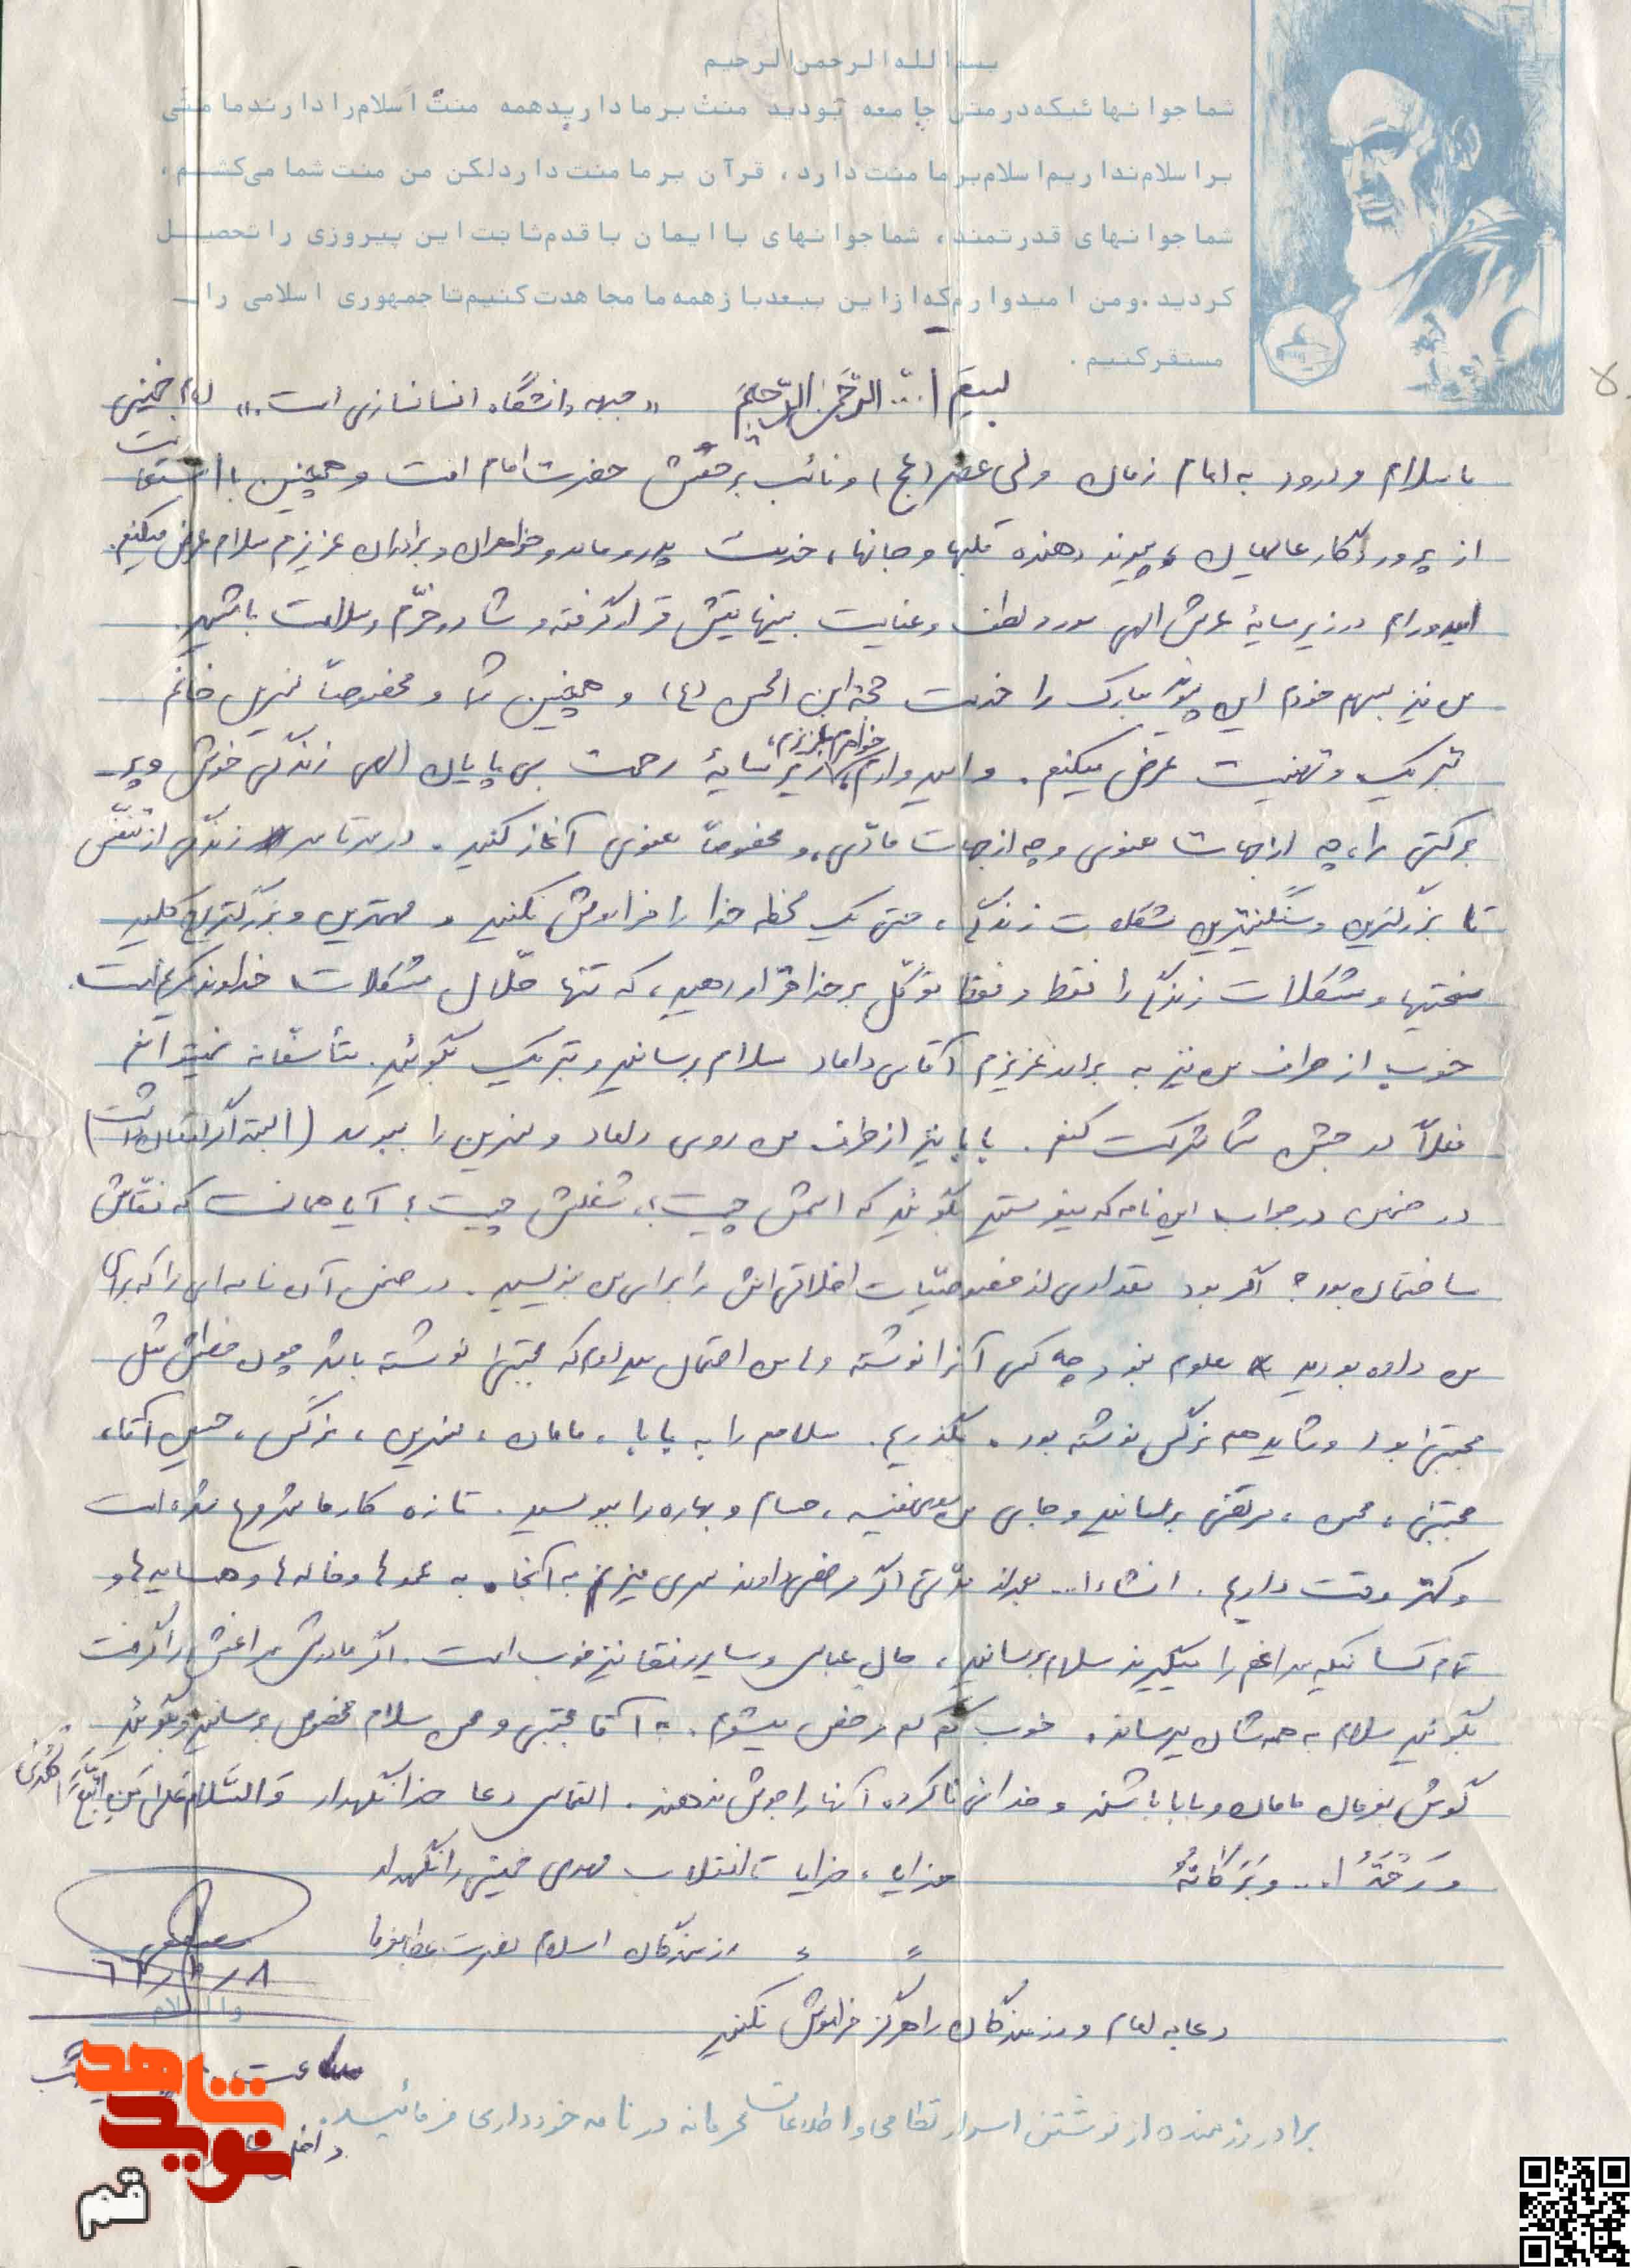 بسم الله الرحمن الرحیم
شما جوانهائیکه در متن جامعه بودید منت بر ما دارید همه منت اسلام را دارند ما منتی
بر اسلام نداریم اسلام بر ما منت دارد، قرآن بر ما منت دارد لکن من منت شما می‌کشم،
شما جوانهای قدرتمند، شما جوانهای با ایمان با قدم ثابت این پیروزی را تحصیل
کردید. و من امیدوارم که از این ببعد باز همه ما مجاهدت کنیم تا جمهوری اسلامی را
مستقر کنیم.
بسم ا... الرّحمن الرّحیم «جبهه دانشگاه انسانسازی است.» امام خمینی
با سلام و درود به امام زمان ولی عصر (عج) و نائب برحقش حضرت امام امت و همچنین با استعانت
از پروردگار عالمیان و پیوند دهنده قلبها و جانها، خدمت پدر و مادر و خواهران و برادران عزیزم سلام عرض میکنم.
امیدورام در زیر سایهٔ عرش الهی مورد لطف و عنایت بینهایتش قرار گرفته و شاد و خرّم و سلامت باشید.
من نیز بسهم خودم این پیوند مبارک را خدمت حجة ابن الحسن (ع) و همچنین شما و مخصوصاً نسرین خانم
تبریک و تهنیت عرض میکنم. و امیدوارم خواهر عزیزم، در زیر سایهٔ رحمت بی پایان الهی زندگی خوش و پر
برکتی را، چه از جهات معنوی و چه از جهات مادّی، و مخصوصاً معنوی آغاز کنید. در سرتاسر زندگی از تنفّس
تا بزرگترین و سنگینترین مشکلات زندگی، حتی یک لحظه خدا را فراموش نکنید و مهمترین و بزرگترین کلید
سختیها و مشکلات زندگی را فقط و فقط توکّل بر خدا قرار دهید، که تنها حلّال مشکلات خداوند کریم است.
خوب از طرف من نیز به برادر عزیزم آقای داماد سلام برسانید و تبریک بگوئید. متأسفانه نمیتوانم
فعلاً در جشن شما شرکت کنم. بابا نیز از طرف من روی داماد و نسرین را ببوسد (البته اگر امکان داشت)
در ضمن در جواب این نامه که میفرستید بگوئید که اسمش چیست؟، شغلش چیست؟ آیا همانست که نقّاش
ساختمان بود؟ اگر بود مقداری از خصوصیّات اخلاقی‌اش را برای من بنویسید. در ضمن آن نامه‌ای را که برای
من داده بودید معلوم نبود چه کسی آنرا نوشته ولی من احتمال میدادم که مجتبی نوشته باشد چون خطش مثل
مجتبی بود و شاید هم نرگس نوشته بود. بگذریم. سلامم را به بابا، مامان، نسرین، نرگس، حسین آقا،
مجتبی، محسن، مرتضی برسانید و بجای من نفیسه، حسام و بهاره را ببوسید. تازه کار ما شروع شده است
و کمتر وقت داریم. انشاءا... بعد از مدّتی اگر مرخصی دادند سری میزنم به آنجا. به عموها و خاله‌ها و همسایه‌ها و
تمام کسانیکه سراغم را میگیرند سلام برسانید، حال عباس و سایر رفقا نیز خوب است. اگر مادرش سراغش را گرفت
بگوئید سلام به همه‌شان میرساند. خوب کم کم مرخص میشوم. به آقا مجتبی و محسن سلام مخصوص برسانید و بگوئید
گوش بفرمان مامان و بابا باشند و خدائی ناکرده آنها را جوش ندهند. التماس دعا خدا نگهدار وَالسَّلامُ عَلی مَنِ اتَّبَعَ الْهُدی
وَ رَحْمَةُ ا... وَ بَرَکاتُهُ خدایا، خدایا تا انقلاب مهدی خمینی را نگهدار
〃 〃 رزمندگان اسلام نصرت عطا بفرما
۶۲/۲/۸
والسلام
دعا به امام و رزمندگان را هرگز فراموش نکنید
ساعت
برادر رزمنده از نوشتن اسرار نظامی و اطلاعات محرمانه در نامه خودداری فرمائید.
داخل
نوید شاهد
قم